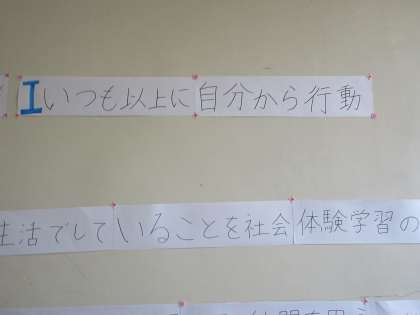 Iいつも以上に自分から行動
生活でしていることを社会体験学習の